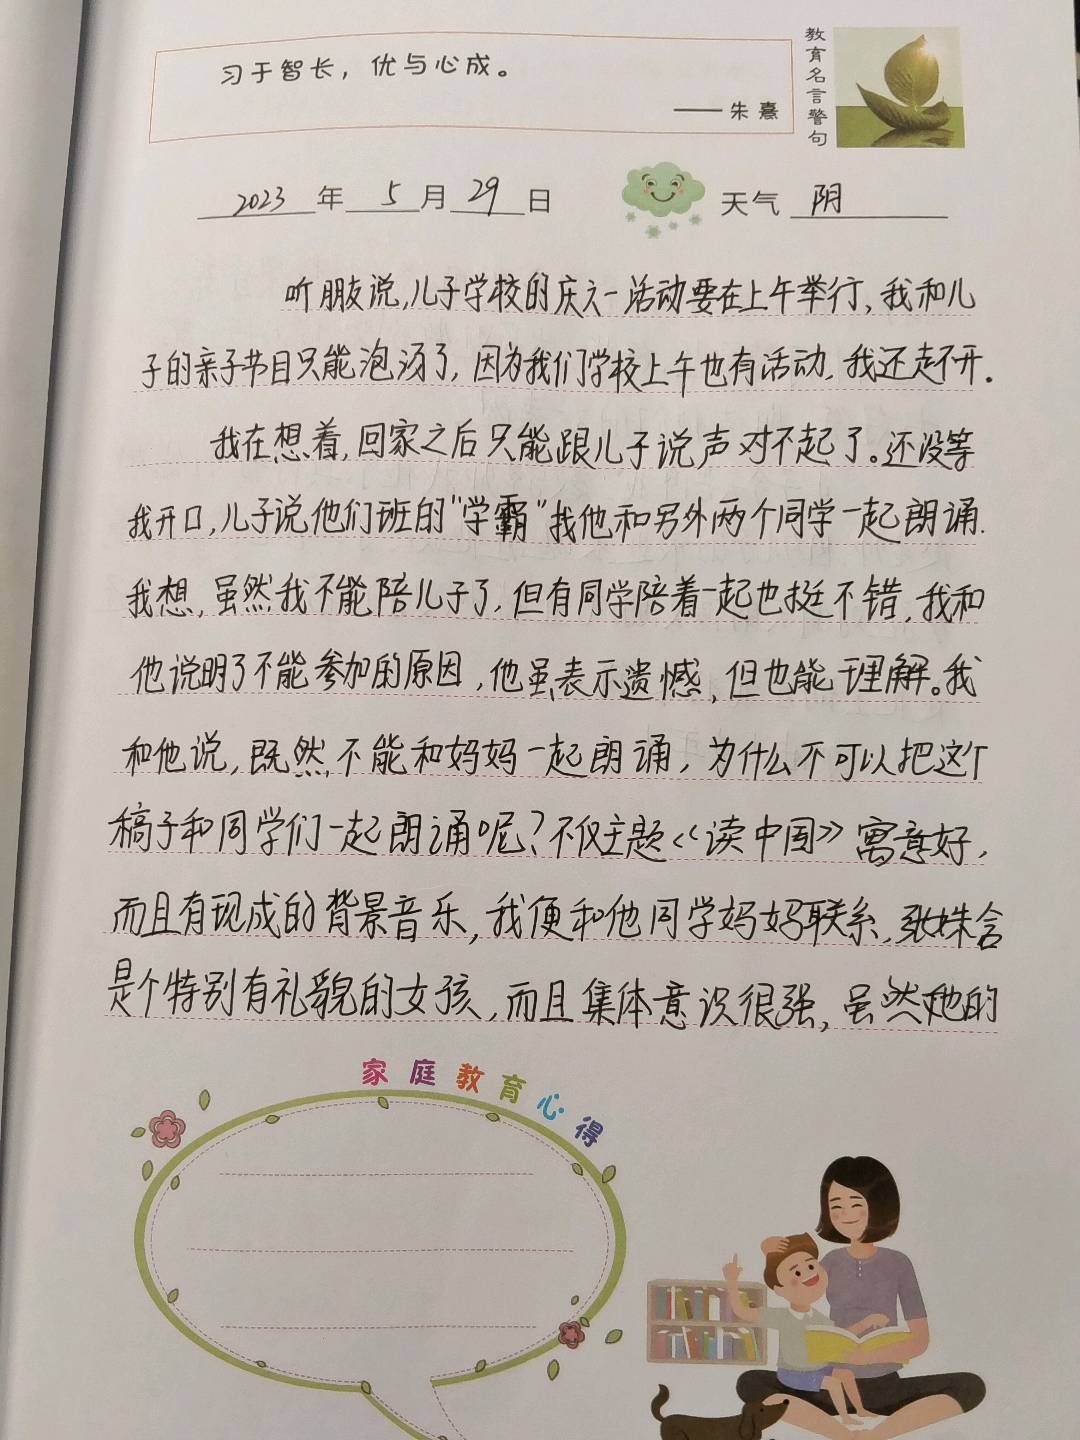 习于智长，优与心成。
——朱熹
教育名言警句
2023年5月29日 天气 阴
听朋友说,儿子学校的庆六一活动要在上午举行,我和儿
子的亲子节目只能泡汤了,因为我们学校上午也有活动,我还走不开.
我在想着,回家之后只能跟儿子说声对不起了。还没等
我开口,儿子说他们班的"学霸"找他和另外两个同学一起朗诵.
我想,虽然我不能陪儿子了,但有同学陪着一起也挺不错,我和
他说明了不能参加的原因,他虽表示遗憾,但也能理解。我
和他说,既然不能和妈妈一起朗诵,为什么不可以把这个
稿子和同学们一起朗诵呢?不仅主题《读中国》寓意好,
而且有现成的背景音乐,我便和他同学妈妈联系,张姝含
是个特别有礼貌的女孩,而且集体意识很强,虽然她的
家庭教育心得